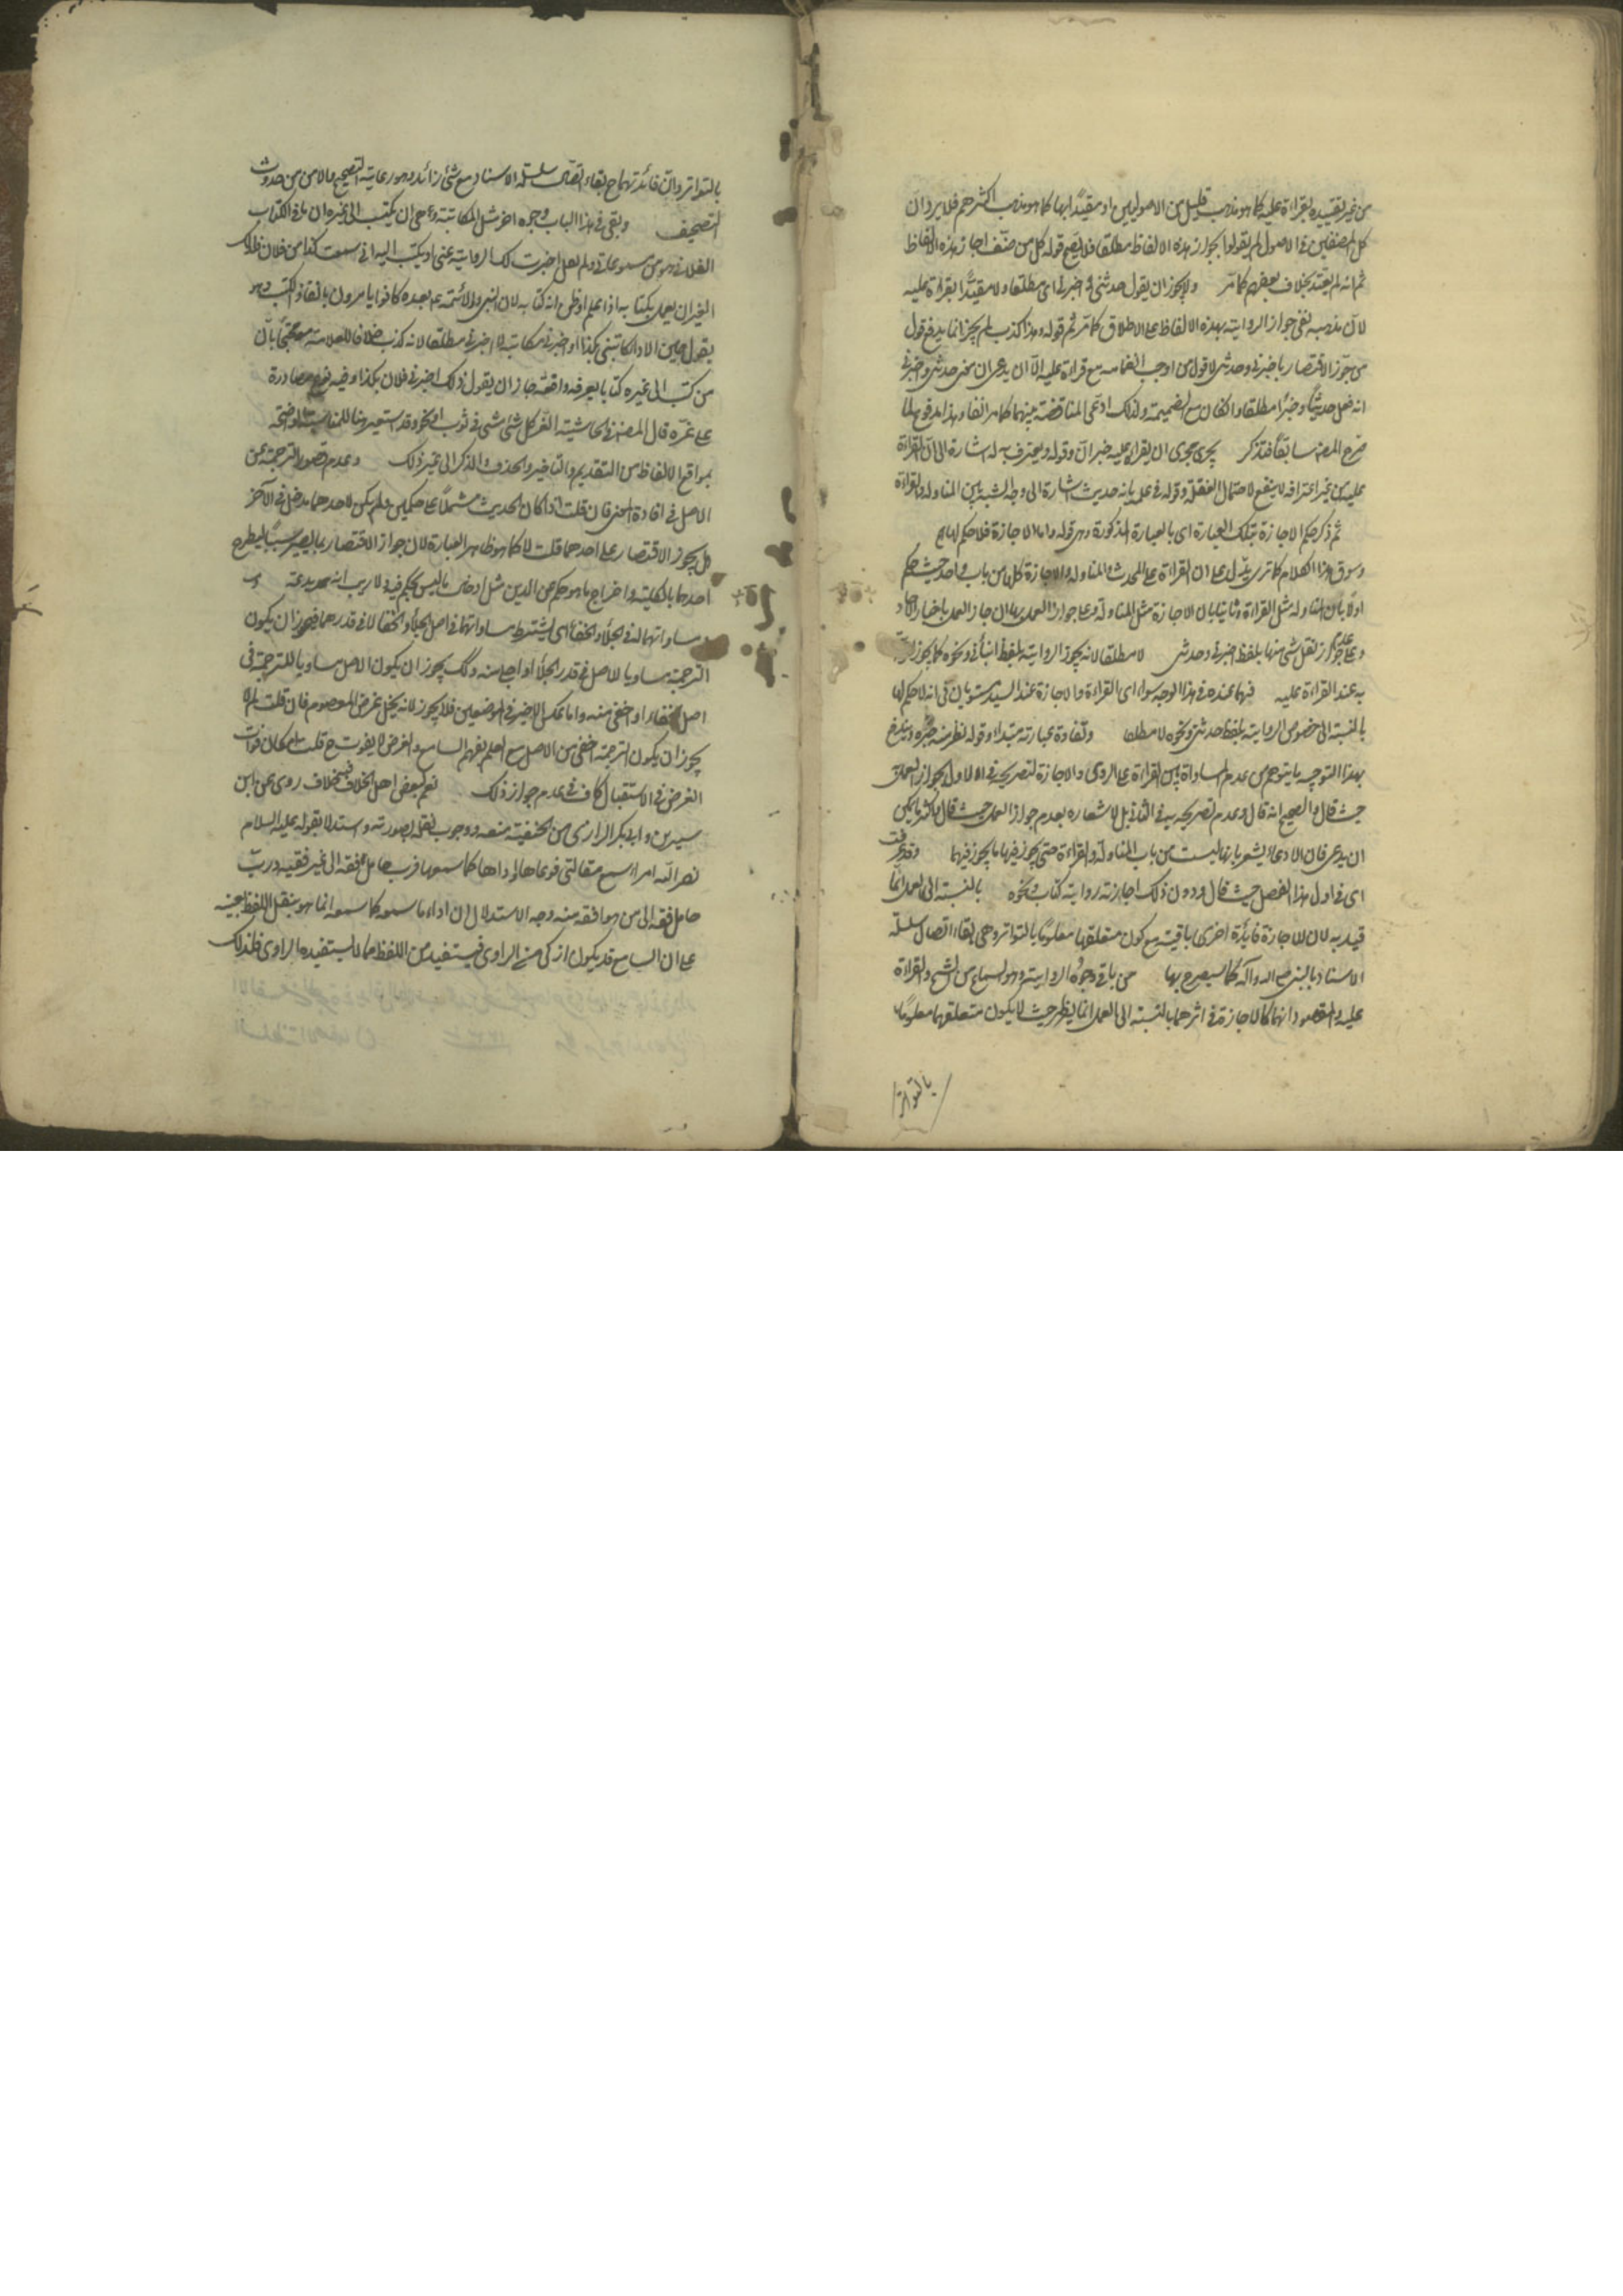 من غير تقييده بقراءة عليه كما هو مذهب قليل من الاصوليين او مقيدًا بها كما هو مذهب اكثرهم فلا يرد ان
كل المصنفين في الاصول لم يقولوا بجواز هذه الالفاظ مطلقا فلا يصح قوله كل من صنف اجاز هذه الالفاظ
ثم انه لم يعتد بخلاف بعضهم كما مر ولا يجوز ان يقول حدثني و اخبرني اى مطلقا ولا مقيدًا بقراءة عليه
لان مذهبه نفى جواز الرواية بهذه الالفاظ على الاطلاق كما مر ثم قوله وهذا كذب لم يجز انما يدفع قول
من جوز الاقتصار باخبرنى وحدثنى لا قول من اوجب انضمامه مع قراءة عليه الا ان يدعى ان معنى حدثنى واخبرنى
انه فعل حديثًا وخبرًا مطلقا وان كان مع الضميمة ولذلك ادعى المناقضة بينهما كما مر انفا وهذا مدفوع بما
صرح المصنف سابقًا فتذكر يجرى مجرى ان يقراء عليه خبر ان وقوله ويعترف به له اشارة الى ان القراءة
عليه من غير اعترافه لا ينفع لاحتمال الغفلة وقوله في علمه بانه حديث اشارة الى وجه الشبه بين المناولة والقراءة
ثم ذكر حكم الاجازة بتلك العبارة اى بالعبارة المذكورة وهى قوله واما الاجازة فلا حكم لها
وسوق هذا الكلام كما ترى يدل على ان القراءة على المحدث والمناولة والاجازة كلها من باب واحد حيث حكم
اولًا بان المناولة مثل القراءة وثانيا بان الاجازة مثل المناولة وعلى جواز العمل بها ان جاز العمل باخبار الاحاد
وعلى عدم جواز نقل شئ منها بلفظ اخبرنى وحدثنى لا مطلقا لانه يجوز الرواية بلفظ انبأنى ونحوه كما يجوز
به عند القراءة عليه فهما عنده في هذا الوجه سواء اى القراءة والاجازة عند السيد مستويان في انه لا حكم لها
بالنسبة الى خصوص الرواية بلفظ حدثنى ونحوه لا مطلقا وتفاوة عبارته مبتداء وقوله نظر منه خبره ويندفع
بهذا التوجيه ما يتوهم من عدم المساواة بين القراءة على الراوى والاجازة لتصريحه في الاول بجواز العمل
حيث قال والصحيح انه قال وعدم تصريحه به في الثاني بل لاشعاره بعدم جواز العمل حيث قال فاكثر ما يمكن
ان يدعى فان الادعاء يشعر بانها ليست من باب المناولة والقراءة حتى يجوز فيها ما يجوز فيهما وقد عرفت
اى في اول هذا الفصل حيث قال ودون ذلك اجازته رواية كتاب ونحوه بالنسبة الى العمل انما
قيد به لان للاجازة فايدة اخرى باقية مع كون متعلقها معلومًا بالتواتر وهى بقاء اتصال سلسلة
الاسناد بالنبى صلى الله وآله كما سيصرح بها من باقى وجوه الرواية وهو السماع من الشيخ والقراءة
عليه والمقصود انهما كالاجازة في اثرهما بالنسبة الى العمل انما يظهر حيث لا يكون متعلقهما معلومًا
بالتواتر
بالتواتر وان فائدتهما ح بقاء اتصال سلسلة الاسناد مع شئ زائد وهو رعاية التصحيح والامن من حدوث
التصحيف وبقى في هذا الباب وجوه اخر مثل المكاتبة وهى ان يكتب الى غيره ان ما في الكتاب
الفلانى هو من مسموعاتى ولم يقل اجزت لك الرواية عنى او يكتب اليه انى سمعت كذا من فلان فللك
الغير ان يعمل بكتابه اذا علم او ظن انه كتابه لان النبى والائمة عم بعده كانوا يامرون بانفاذ الكتب وهو
يقول حين الاداء كاتبنى بكذا او اخبرنى مكاتبة لا اخبرنى مطلقا لانه كذب خلافا للعلامة محتجًا بان
من كتب الى غيره كتابا يعرفه واقعه جاز ان يقول ذلك اخبرنى فلان بكذا وفيه نوع مصادرة
على غره قال المصنف في الحاشية الغر كل شئ مثنى في ثوب او نحوه وقد استعير هنا للمناسبة الواضحة
بمواقع الالفاظ من التقديم والتاخير والحذف والذكر الى غير ذلك وعدم قصور الترجمة عن
الاصل في افادة المعنى فان قلت اذا كان الحديث مشتملًا على حكمين ولم يكن لاحدهما مدخل في الآخر
هل يجوز الاقتصار على احدهما قلت لا كما هو ظاهر العبارة لان جواز الاقتصار بما يصير سببًا لطرح
احدهما بالكلية واخراج ما هو حكم عن الدين مثل ادخال ما ليس بحكم فيه ولا ريب انه بدعة و
مساواتهما له في الجلاء والخفاء اى يشترط مساواتهما في اصل الجلاء والخفاء لا في قدرهما فيجوز ان يكون
الترجمة مساويا للاصل في قدر الجلاء او اجلى منه وكك يجوز ان يكون الاصل مساويا للترجمة فى
اصل الخفاء او اخفى منه واما عكس الاخير في الموضعين فلا يجوز لانه يخل بغرض المعصوم فان قلت لم لا
يجوز ان يكون الترجمة اخفى من الاصل مع العلم بفهم السامع والغرض لا يفوت ح قلت امكان فوات
الغرض في الاستقبال كاف في عدم جواز ذلك نعم لبعض اهل الخلاف فيه خلاف روى عن ابن
سيرين و ابى بكر الرازى من الحنفية منعه ووجوب نقله بصورته واستدلا بقوله عليه السلام
نضر الله امراء سمع مقالتى فوعاها واداها كما سمعها فرب حامل فقه الى غير فقيه ورب
حامل فقه الى من هو افقه منه وجه الاستدلال ان اداء ما سمعه كما سمعه انما هو بنقل اللفظ بعينه
على ان السامع قد يكون ازكى من الراوى فيستفيد من اللفظ ما لا يستفيده الراوى فلذلك